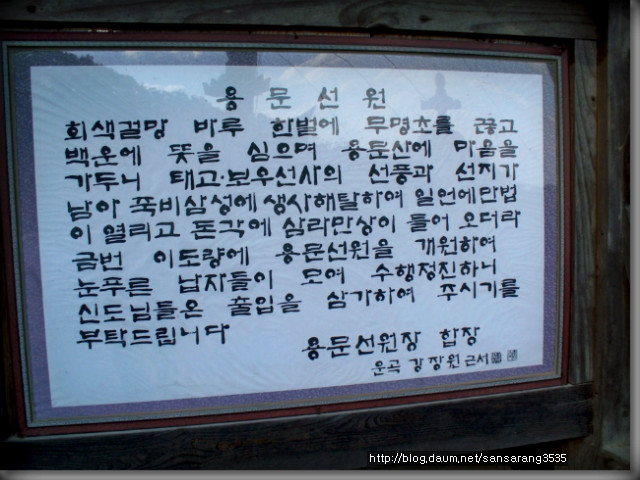 용문선원
회색걸망 바루 한벌에 무명초를 끊고
백운에 뜻을 심으며 용문산에 마음을
가두니 태고·보우선사의 선풍과 선지가
남아 죽비삼성에 생사해탈하여 일언에만법
이 열리고 돈각에 삼라만상이 들어 오더라
금번 이도량에 용문선원을 개원하여
눈푸른 납자들이 모여 수행정진하니
신도님들은 출입을 삼가하여 주시기를
부탁드립니다
용문선원장 합장
운곡 강장원 근서
http://blog.daum.net/sansarang3535